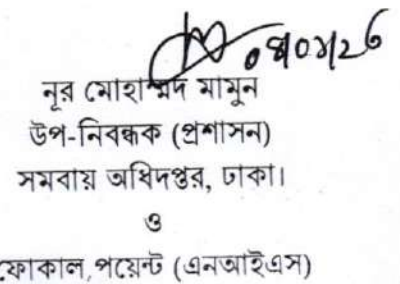 নূর মোহাম্মদ মামুন
উপ-নিবন্ধক (প্রশাসন)
সমবায় অধিদপ্তর, ঢাকা।
ও
ফোকাল পয়েন্ট (এনআইএস)